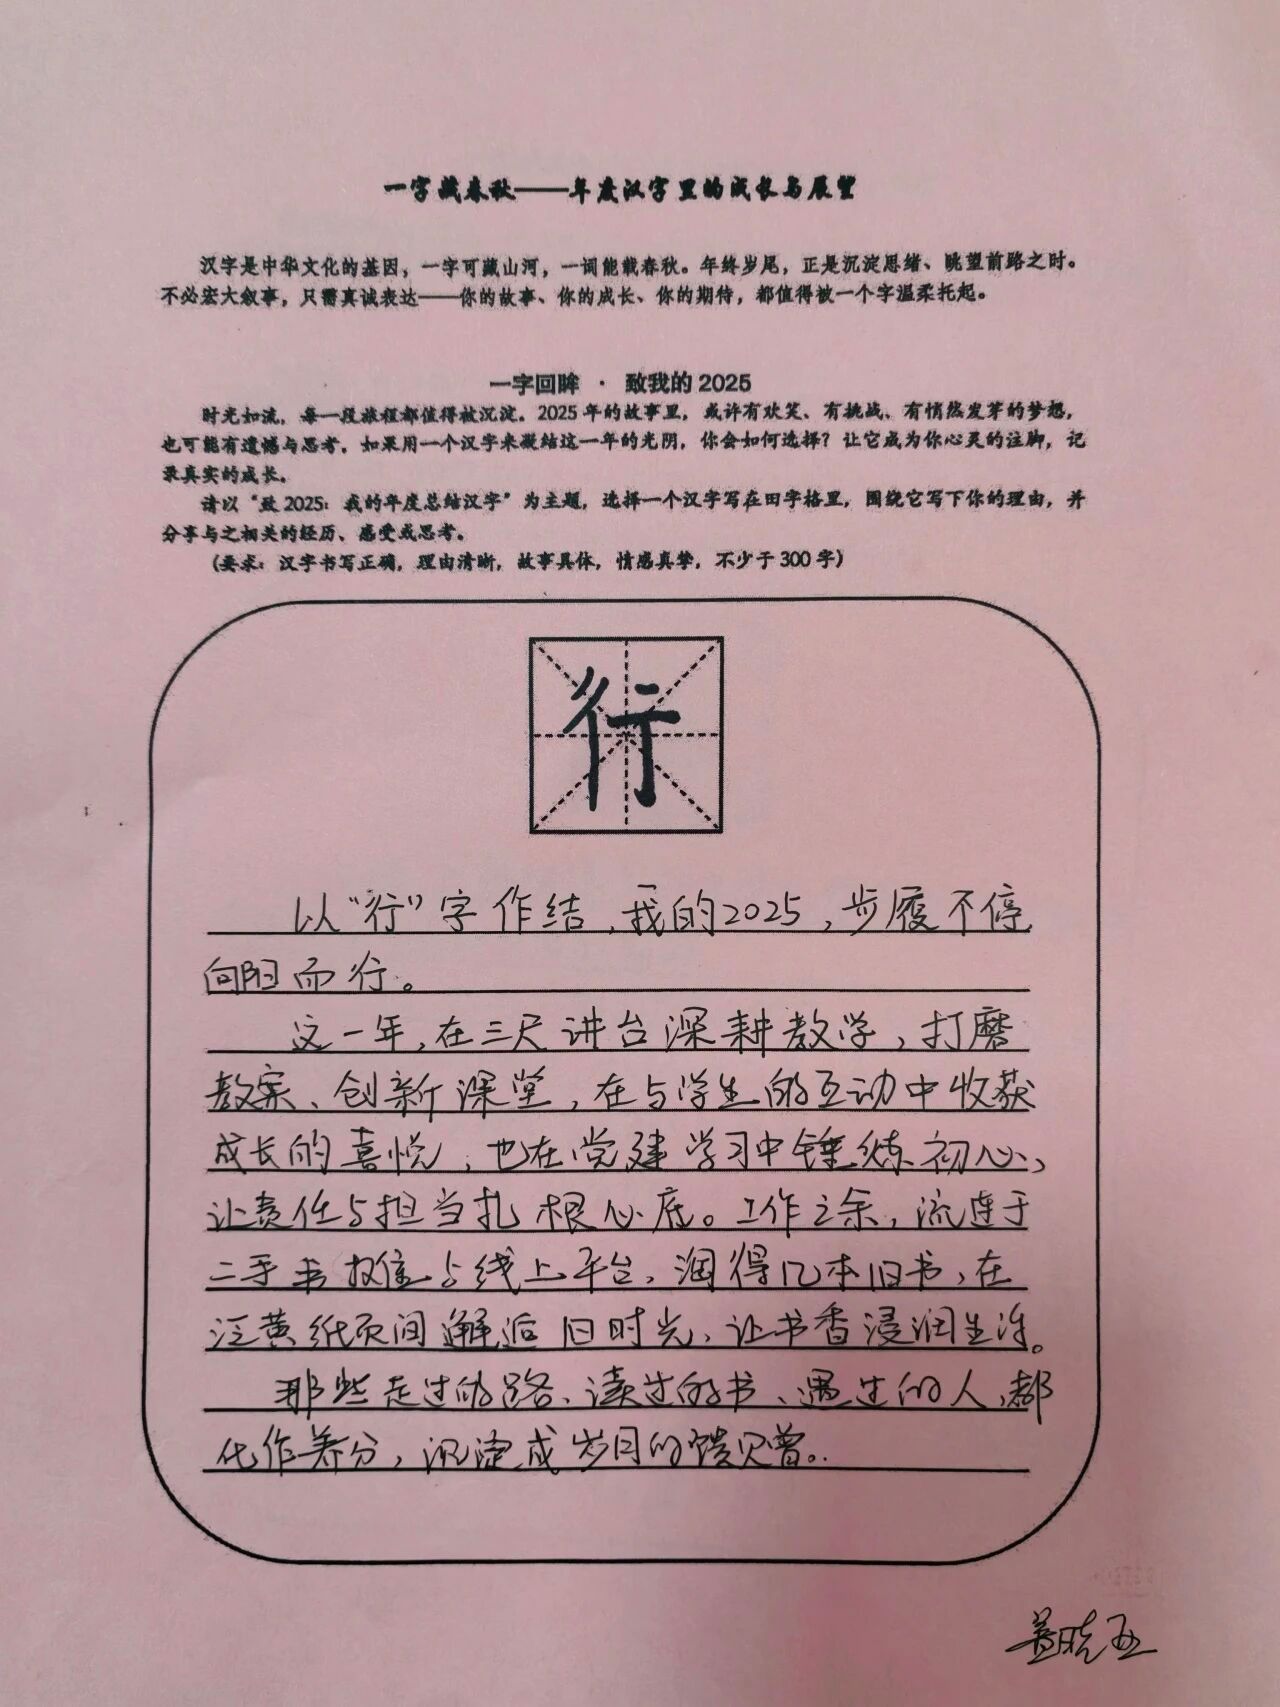 一字藏春秋——年度汉字里的成长与展望
汉字是中华文化的基因，一字可藏山河，一词能载春秋。年终岁尾，正是沉淀思绪、眺望前路之时。
不必宏大叙事，只需真诚表达——你的故事、你的成长、你的期待，都值得被一个字温柔托起。
一字回眸 · 致我的 2025
时光如流，每一段旅程都值得被沉淀。2025 年的故事里，或许有欢笑、有挑战、有悄然发芽的梦想，
也可能有遗憾与思考。如果用一个汉字来凝结这一年的光阴，你会如何选择？让它成为你心灵的注脚，记
录真实的成长。
请以“致 2025：我的年度总结汉字”为主题，选择一个汉字写在田字格里，围绕它写下你的理由，并
分享与之相关的经历、感受或思考。
（要求：汉字书写正确，理由清晰，故事具体，情感真挚，不少于 300 字）
行
以“行”字作结，我的2025，步履不停
向阳而行。
这一年，在三尺讲台深耕教学，打磨
教案、创新课堂，在与学生的互动中收获
成长的喜悦，也在党建学习中锤炼初心、
让责任与担当扎根心底。工作之余，流连于
二手书摊位与线上平台，淘得几本旧书，在
泛黄纸页间邂逅旧时光，让书香浸润生活。
那些走过的路、读过的书、遇过的人，都
化作养分，沉淀成岁月的馈赠。